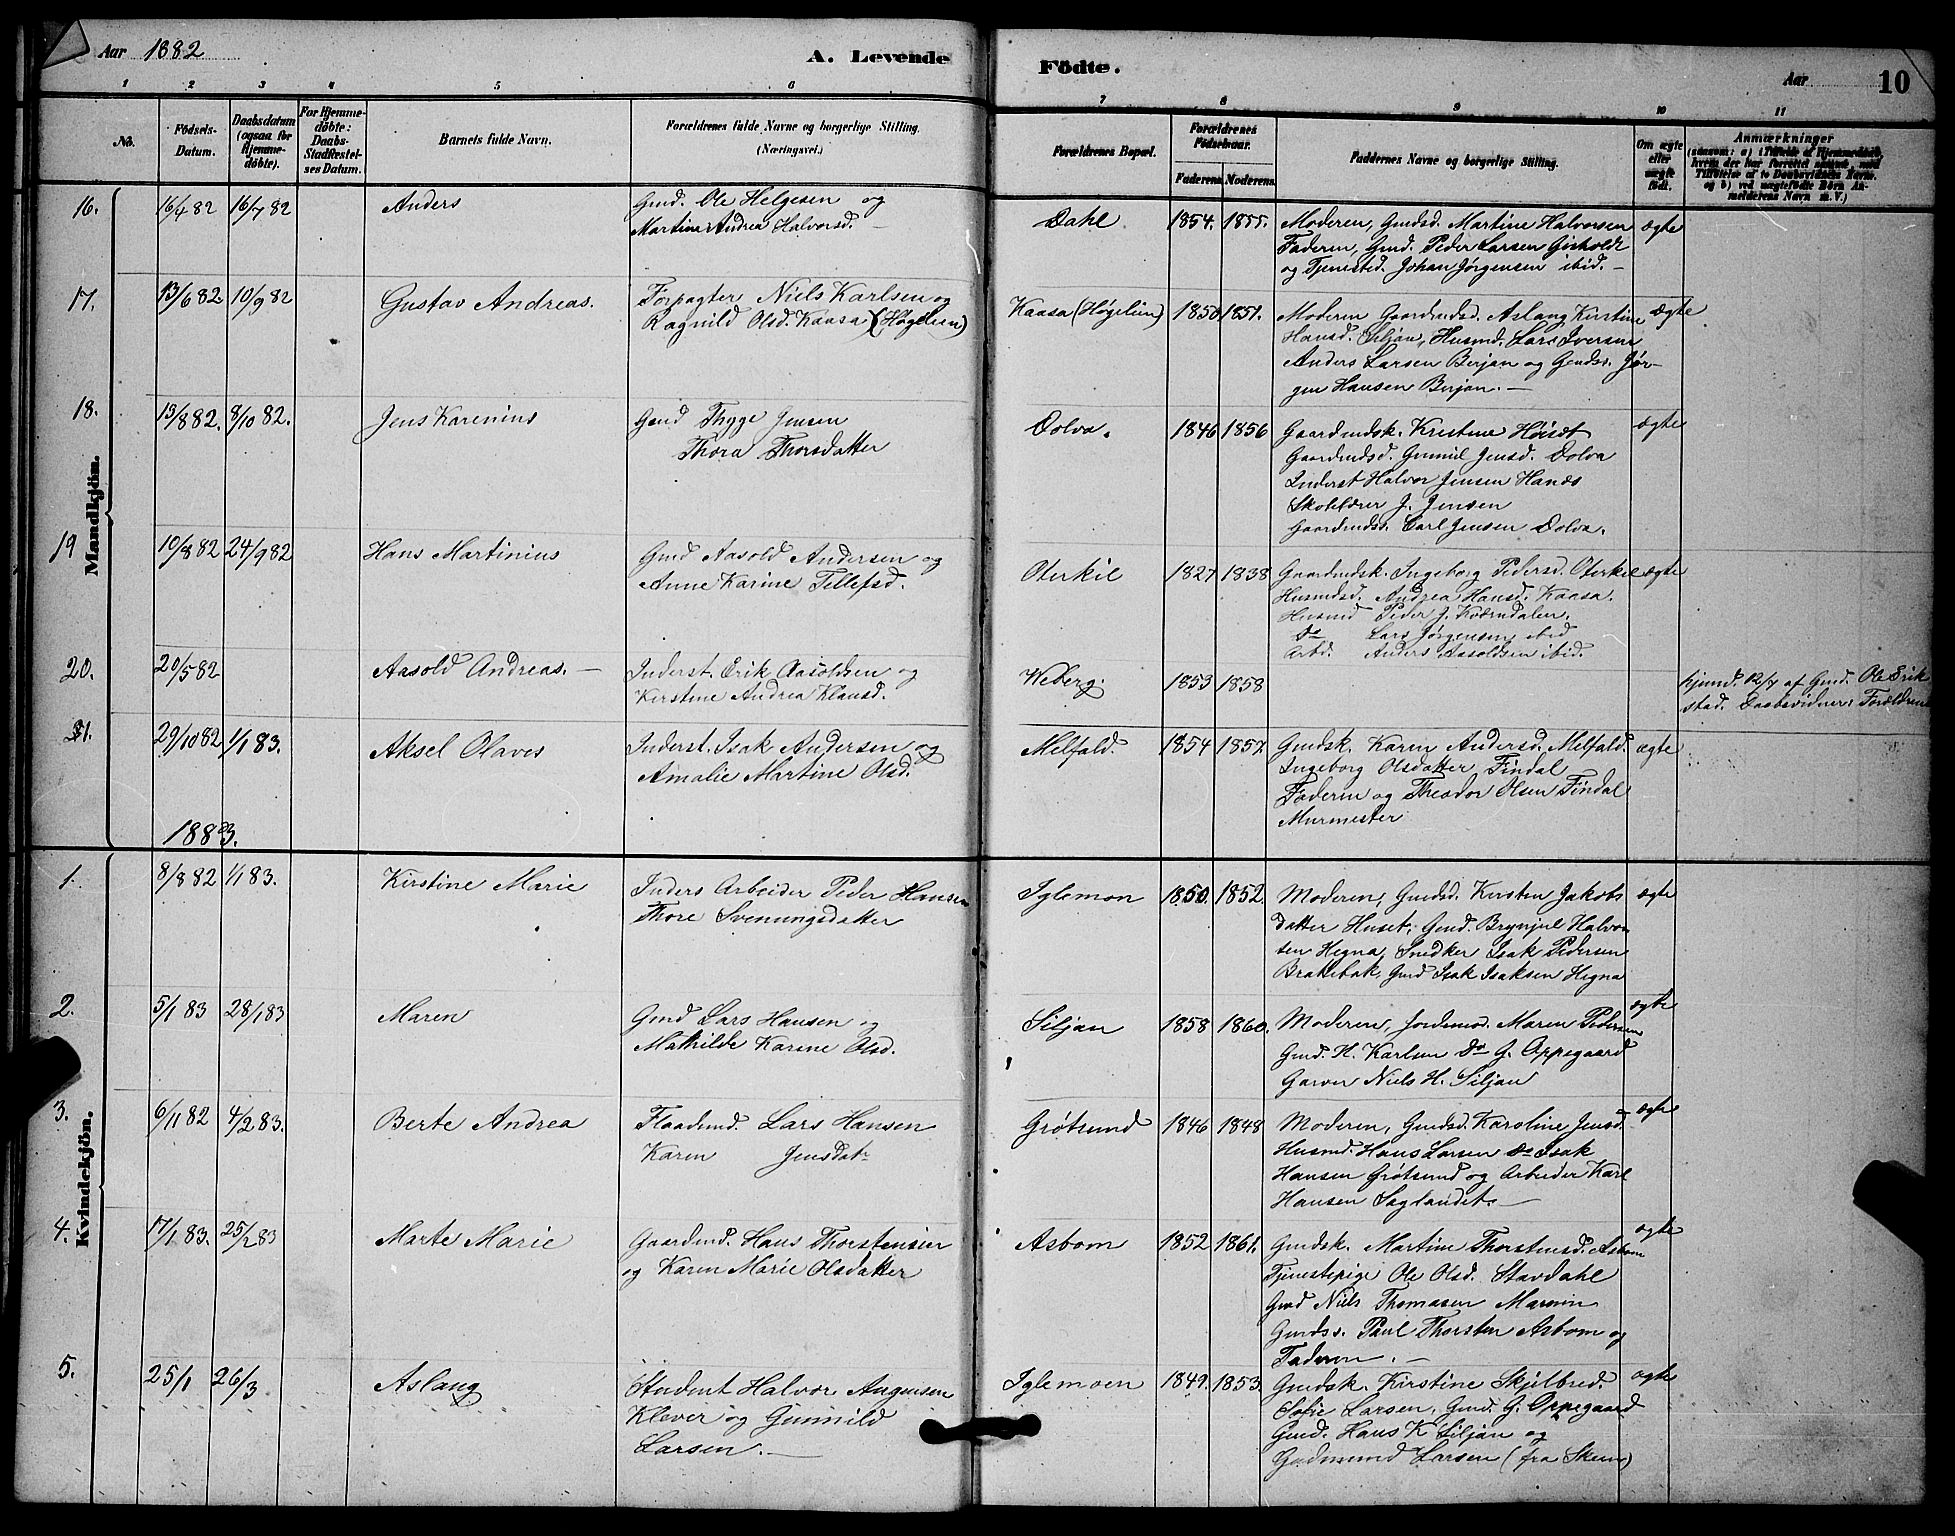 Aar 1882
A. Levende
Fødte.
Aar
10
1 2 3 4 5 6
7 8 9 10 11
No.
Fødsels-
Datum.
Daabsdatum
(ogsaa for
Hjemme-
døbte).
For Hjemme-
døbte:
Daabs-
Stadfæstel-
ses Datum.
Barnets fulde Navn.
Forældrenes fulde Navne og borgerlige Stilling.
(Næringsvei.)
Forældrenes Bopæl.
Forældrenes
Fødselsaar.
Faderens. Moderens.
Faddernes Navne og borgerlige Stilling.
Om ægte
eller
uægte
født.
Anmærkninger
Mandkjön.
16. 16/4 82 16/7 82 Anders
Gmd. Ole Helgesen og
Martine Andrea Halvorsd.
Dahl 1854. 1855.
Moderen, Gmdsd. Martine Halvorsen
Faderen, Gmd. Peder Larsen Gisholdt
og Tjenested. Johan Jørgensen ibid. —
ægte
17. 13/6 82 10/9 82 Gustav Andreas.
Forpagter Niels Karlsen og
Ragnild Olsd. Kaasa (Høgelien)
Kaasa (Høgelien) 1850 1851.
Moderen Gaardmdsd. Aslaug Kirstine
Hansd. Siljan, Husmd. Lars Iversen
Anders Larsen Berjan og Gmdss. Jør-
gen Hansen Berjan. —
ægte
18. 13/8 82. 8/10 82. Jens Karenius
Gmd Thyge Jensen
Thora Thorsdatter
Dolva. 1846 1856
Gaardmdsk. Kristine Høisdt
Gaardmdsd. Gunnil Jensd. Dolva
Inderst Halvor Jensen Hanes
Skolelærer J. Jensen
Gaardmdss. Carl Jensen Dolva.
ægte
19 10/8 82 24/9 82 Hans Martinius
Gmd Aasold Andersen og
Anne Karine Tellefsd.
Oterkil 1827 1838
Gaardmdsk. Ingeborg Pedersd. Oterkil
Husmdsd. Andrea Hansd. Kaasa.
Husmd Peder J. Kværndalen.
Do Lars Jørgensen ibid
Arbd. Anders Aasoldsen ibid.
ægte
20. 20/5 82 Aasold Andreas. —
Inderst. Erik Aasoldsen og
Kirstine Andrea Klausd.
Weberg. 1853 1858
hjemd. 12/7 af Gmd. Ole Erik
stad. Daabsvidner: Forældrene
21. 29/10 82 1/1 83. Aksel Olaves
Inderst. Isak Andersen og
Amalie Martine Olsd.
Melfald. 1854 1857.
Gmdsk. Karen Andersd. Melfald.
Ingeborg Olsdatter Findal
Faderen og Theodor Olsen Findal
Murmester
ægte
1883.
Kvindekjön.
1. 8/8 82 1/1 83. Kirstine Marie
Inders Arbeider Peder Hansen
Thore Sveningsdatter
Iglemon 1850. 1852.
Moderen, Gmdsd. Kirsten Jakobs
datter Huset, Gmd. Brynjul Halvor
sen Hegna, Snedker Isak Pedersen
Brakebak, Gmd Isak Isaksen Hegna
ægte
2. 5/1 83 28/1 83 Maren
Gmd Lars Hansen og
Mathilde Karine Olsd.
Siljan 1858 1860.
Moderen, Jordemod. Maren Pedersen
Gmd. H. Karlsen Do G. Oppegaard
Garver Niels H. Siljan
ægte
3. 6/11 82 4/2 83. Berte Andrea
Flaademd. Lars Hansen
Karen Jensdatr
Grøtsund 1846 1848
Moderen, Gmdsd. Karoline Jensd.
Husmd. Hans Larsen Do Isak
Hansen Grøtsund og Arbeider Karl
Hansen Saglandet. —
ægte
4. 17/1 83. 25/2 83 Marte Marie
Gaardmd. Hans Thorstensen
og Karen Marie Olsdatter
Asbom 1852 1861.
Gmdsk. Martine Thorstensd. Asbom
Tjenestepige Ole Olsd. Stavdahl
Gmd Niels Thomasen
Gmdss. Paul Thorsten Asbom og
Faderen. —
ægte
5. 25/1 26/3 Aslaug
Student Halvor Augensen
Klever og Gunnild
Larsen. —
Iglemoen 1849. 1853.
Gmdsk. Kirstine Skjelbred.
Sofie Larsen, Gmd. G. Oppegaard
Gmd. Hans K Siljan og
Gudmund Larsen (fra Skien)
ægte